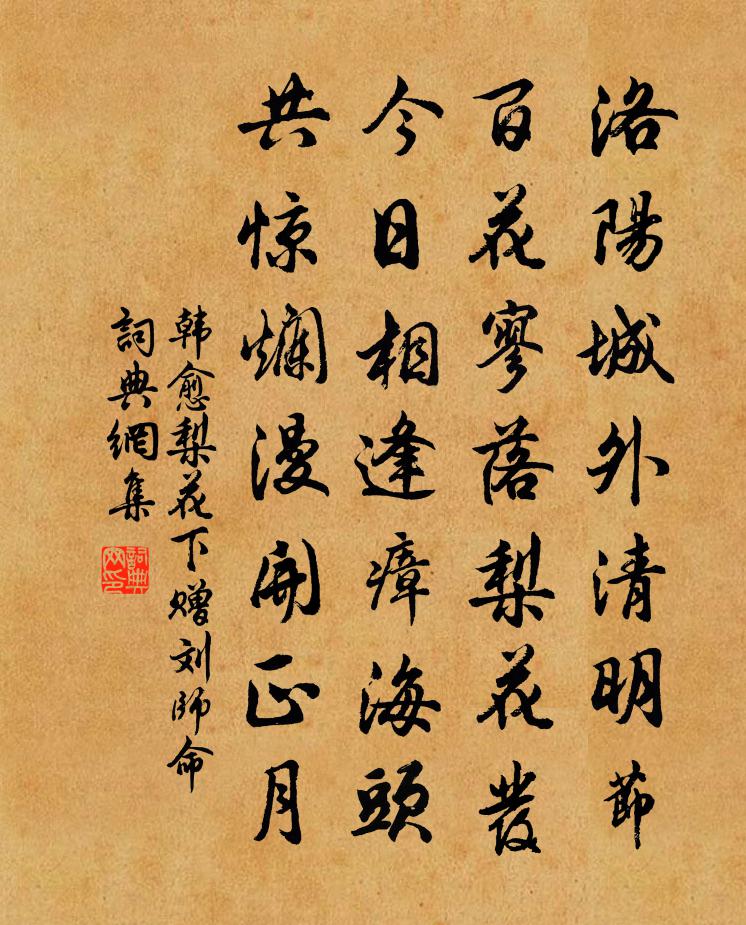 洛陽城外清明節
百花寥落梨花發
今日相逢瘴海頭
共惊爛漫開正月
韩愈梨花下赠刘師命
詞典網集
詞典網印